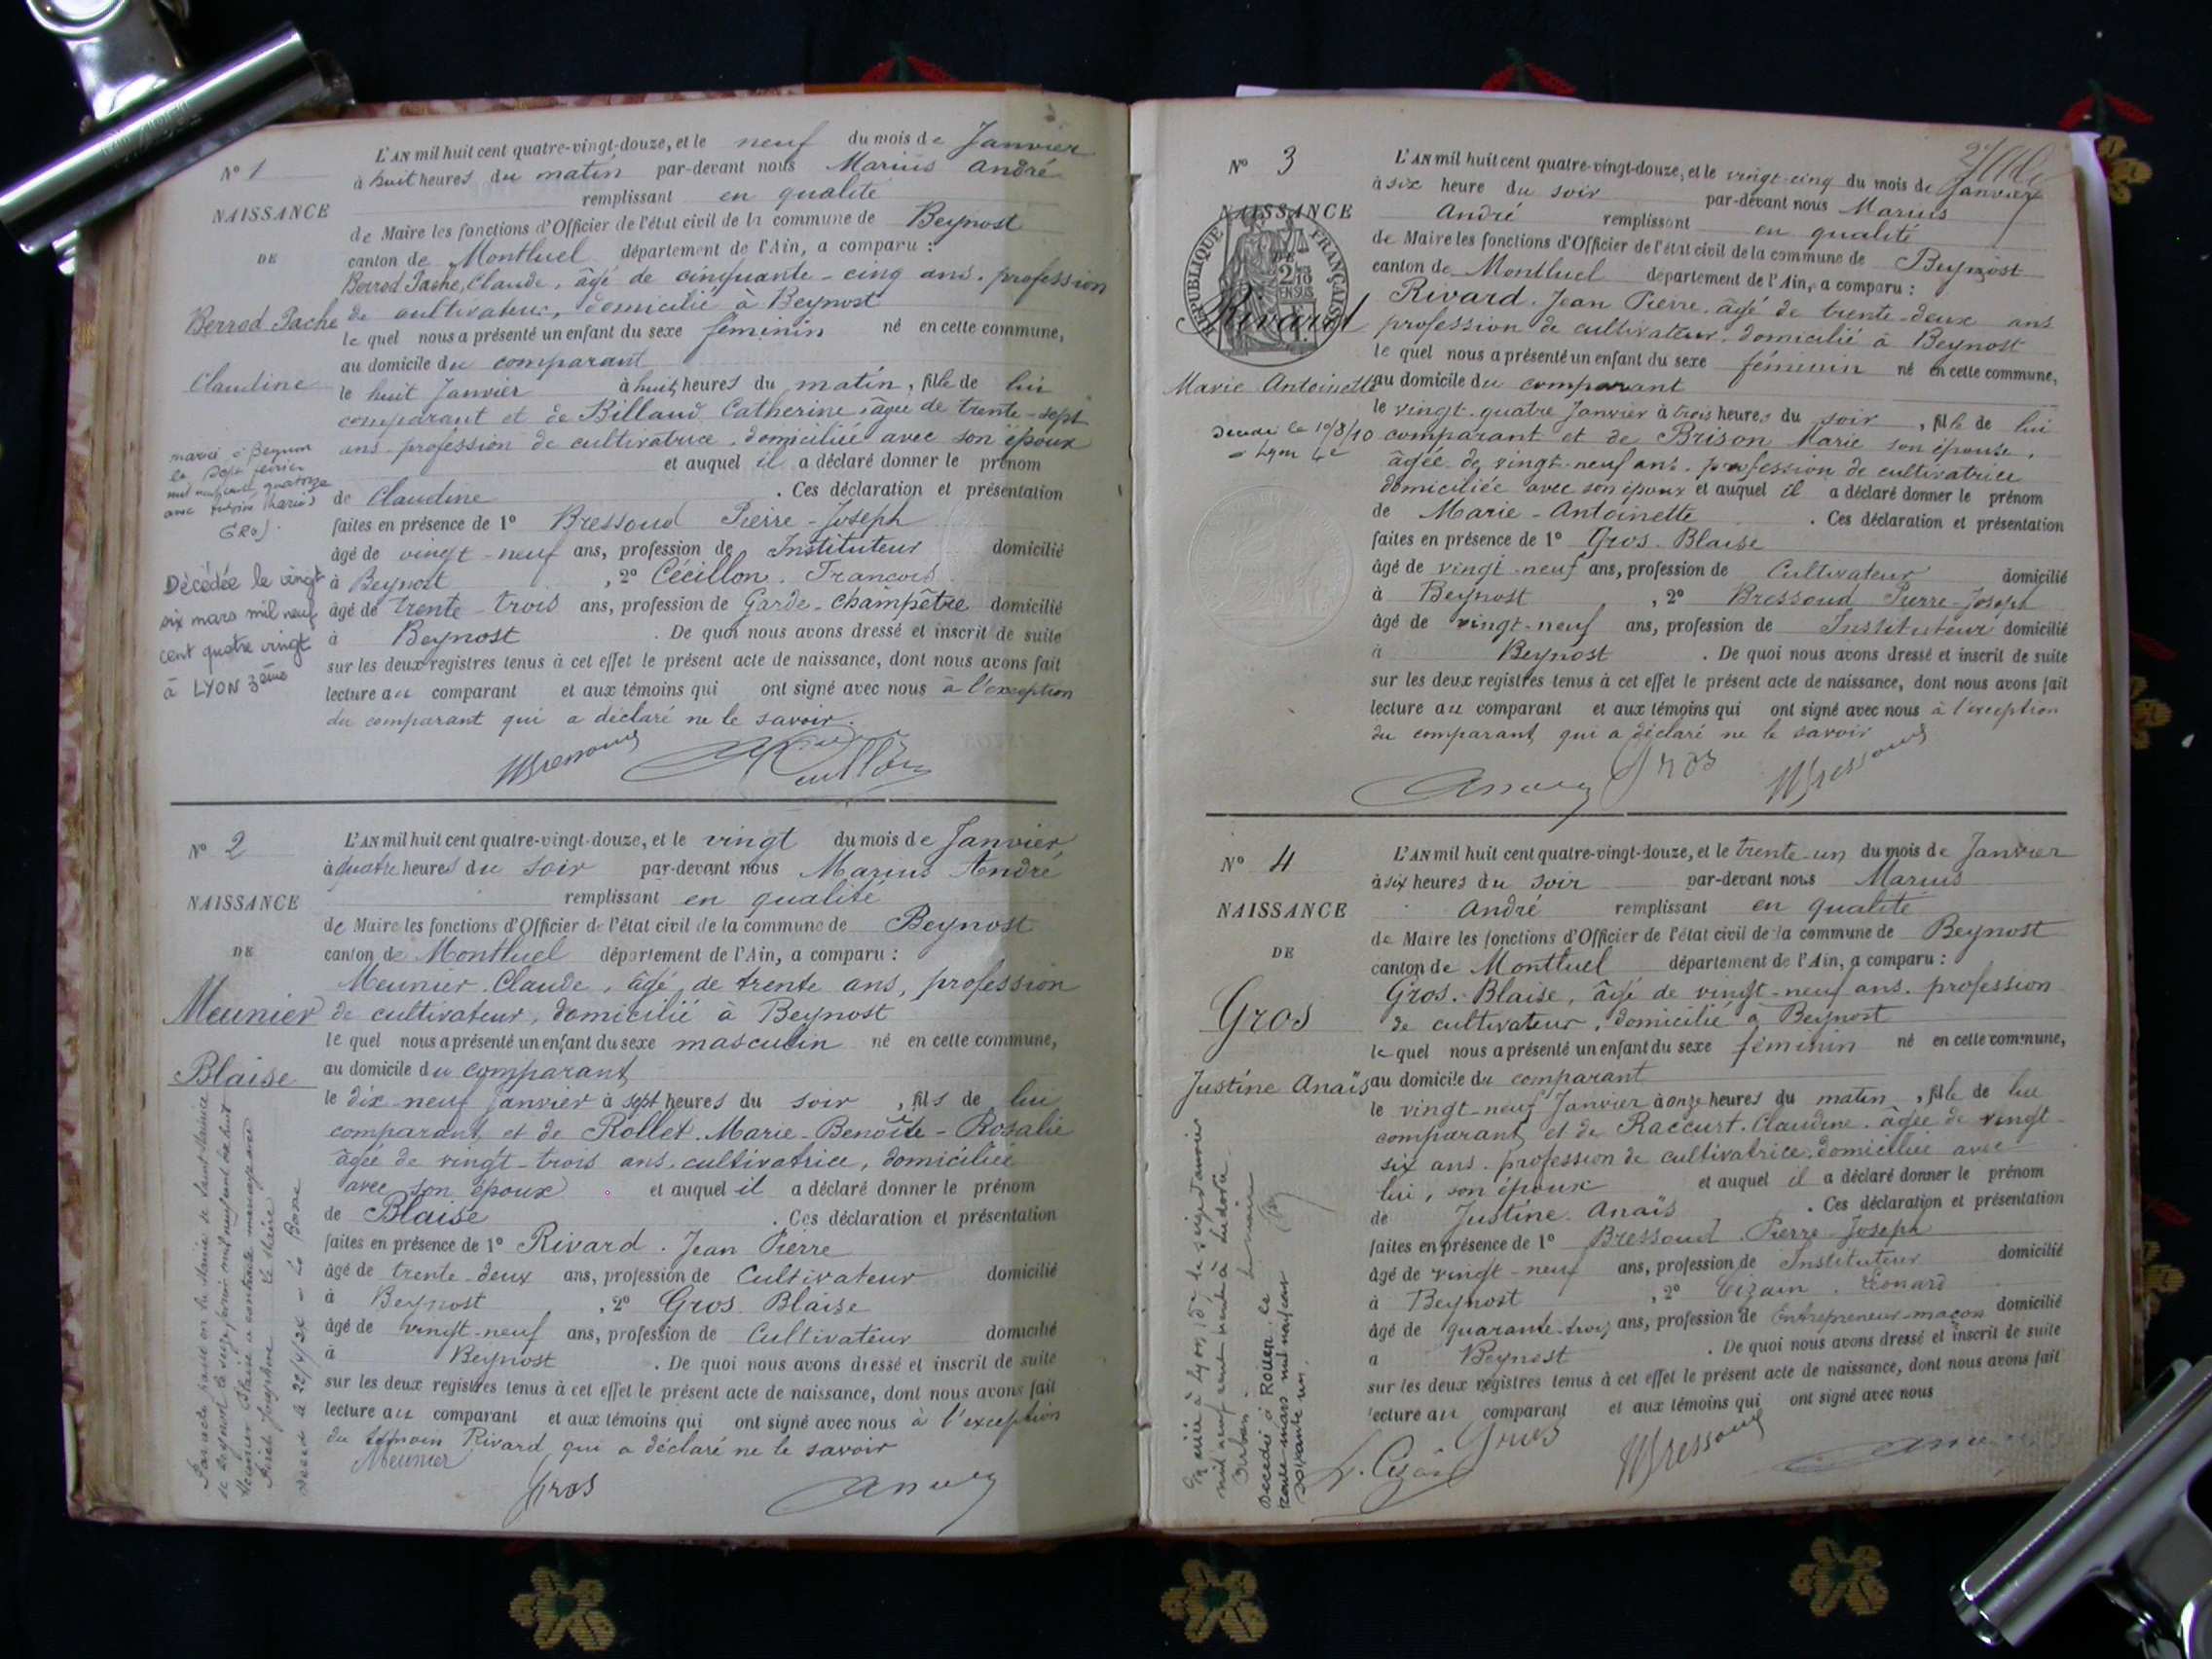 N° 1
NAISSANCE
DE
Berrod Pache
Claudine
marié à Beynost
le Sept février
mil neuf cent quatorze
avec Antoine Marius
GROS.
Décédée le vingt
six mars mil neuf
cent quatre vingt
à LYON 3ème
L'AN mil huit cent quatre-vingt-douze, et le neuf du mois de Janvier
à huit heures du matin par-devant nous Marius André
remplissant en qualité
de Maire les fonctions d'Officier de l'état civil de la commune de Beynost
canton de Montluel département de l'Ain, a comparu :
Berrod Pache, Claude, âgé de cinquante-cinq ans. profession
de cultivateur, domicilié à Beynost
le quel nous a présenté un enfant du sexe féminin né en cette commune,
au domicile du comparant
le huit Janvier à huit heures du matin, fille de lui
comparant et de Billaud Catherine, âgée de trente-sept
ans profession de cultivatrice, domiciliée avec son époux
et auquel il a déclaré donner le prénom
de Claudine . Ces déclaration et présentation
faites en présence de 1° Bressoud Pierre-Joseph
âgé de vingt-neuf ans, profession de Instituteur domicilié
à Beynost , 2° Cécillon. Francois
âgé de trente-trois ans, profession de Garde-champêtre domicilié
à Beynost . De quoi nous avons dressé et inscrit de suite
sur les deux registres tenus à cet effet le présent acte de naissance, dont nous avons fait
lecture au comparant et aux témoins qui ont signé avec nous à l'exception
du comparant qui a déclaré ne le savoir.
Bressoud
N° 2
NAISSANCE
DE
Meunier
Blaise
L'AN mil huit cent quatre-vingt-douze, et le vingt du mois de Janvier
à quatre heures du soir par-devant nous Marius André
remplissant en qualité
de Maire les fonctions d'Officier de l'état civil de la commune de Beynost
canton de Montluel département de l'Ain, a comparu :
Meunier. Claude, âgé de trente ans, profession
de cultivateur, domicilié à Beynost
le quel nous a présenté un enfant du sexe masculin né en cette commune,
au domicile du comparant
le dix-neuf Janvier à sept heures du soir , fils de lui
comparant et de Rollet. Marie-Benoîte-Rosalie
âgée de vingt-trois ans. cultivatrice, domiciliée
avec son époux et auquel il a déclaré donner le prénom
de Blaise . Ces déclaration et présentation
faites en présence de 1° Rivard. Jean Pierre
âgé de trente-deux ans, profession de Cultivateur domicilié
à Beynost , 2° Gros Blaise
âgé de vingt-neuf ans, profession de Cultivateur domicilié
à Beynost . De quoi nous avons dressé et inscrit de suite
sur les deux registres tenus à cet effet le présent acte de naissance, dont nous avons fait
lecture au comparant et aux témoins qui ont signé avec nous à l'exception
du témoin Rivard qui a déclaré ne le savoir
Meunier
Gros
N° 3
NAISSANCE
DE
RÉPUBLIQUE FRANÇAISE
Rivard
Marie Antoinette
décédé le 10/8/10
L'AN mil huit cent quatre-vingt-douze, et le vingt-cinq du mois de Janvier
à six heure du soir par-devant nous Marius
André remplissant en qualité
de Maire les fonctions d'Officier de l'état civil de la commune de Beynost
canton de Montluel département de l'Ain, a comparu :
Rivard. Jean Pierre. âgé de trente-deux ans
profession de cultivateur. domicilié à Beynost
le quel nous a présenté un enfant du sexe féminin né en cette commune,
au domicile du comparant
le vingt-quatre Janvier à trois heures du soir , fille de lui
comparant et de Brison Marie son épouse,
âgée de vingt-neuf ans. profession de cultivatrice
domiciliée avec son époux et auquel il a déclaré donner le prénom
de Marie-Antoinette . Ces déclaration et présentation
faites en présence de 1° Gros. Blaise
âgé de vingt-neuf ans, profession de Cultivateur domicilié
à Beynost , 2° Bressoud Pierre-Joseph
âgé de vingt-neuf ans, profession de Instituteur domicilié
à Beynost . De quoi nous avons dressé et inscrit de suite
sur les deux registres tenus à cet effet le présent acte de naissance, dont nous avons fait
lecture au comparant et aux témoins qui ont signé avec nous à l'exception
du comparant qui a déclaré ne le savoir
Gros Bressoud
N° 4
NAISSANCE
DE
Gros
Justine Anaïs
L'AN mil huit cent quatre-vingt-douze, et le trente-un du mois de Janvier
à six heures du soir par-devant nous Marius
André remplissant en qualité
de Maire les fonctions d'Officier de l'état civil de la commune de Beynost
canton de Montluel département de l'Ain, a comparu :
Gros. Blaise, âgé de vingt-neuf ans. profession
de cultivateur, domicilié à Beynost
le quel nous a présenté un enfant du sexe féminin né en cette commune,
au domicile du comparant
le vingt-neuf Janvier à onze heures du matin , fille de lui
comparant et de Raccurt. Claudine. âgée de vingt-
six ans. profession de cultivatrice. domiciliée avec
lui, son époux et auquel il a déclaré donner le prénom
de Justine. Anaïs . Ces déclaration et présentation
faites en présence de 1° Bressoud Pierre-Joseph
âgé de vingt-neuf ans, profession de Instituteur domicilié
à Beynost , 2° Cizain. Léonard
âgé de quarante-trois ans, profession de Entrepreneur-maçon domicilié
à Beynost . De quoi nous avons dressé et inscrit de suite
sur les deux registres tenus à cet effet le présent acte de naissance, dont nous avons fait
lecture au comparant et aux témoins qui ont signé avec nous
Gros
Bressoud